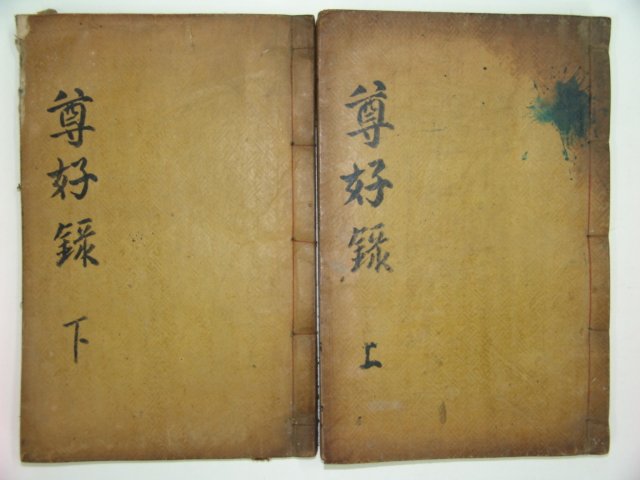 尊好錄上
尊好錄下